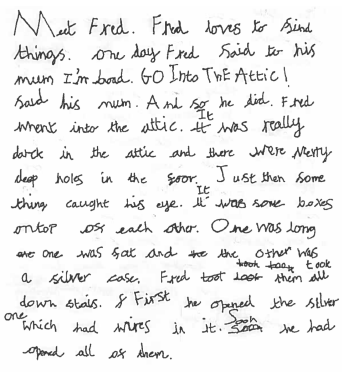 Meet Fred. Fred loves to find
things. one day Fred Said to his
mum I'm boad. GO Into ThE Attic!
Said his mum. And so he did. Fred
It
went into the attic. It was really
darck in the attic and there were verry
deep holes in the foor. Just then some
It
thing caught his eye. It was some boxes
ontop of each other. One was long
one was fat and the other was
took took took
a silver case. Fred toot them all
down stais. First he opened the silver
one
which had wires in it. Soon he had
opend all of them.